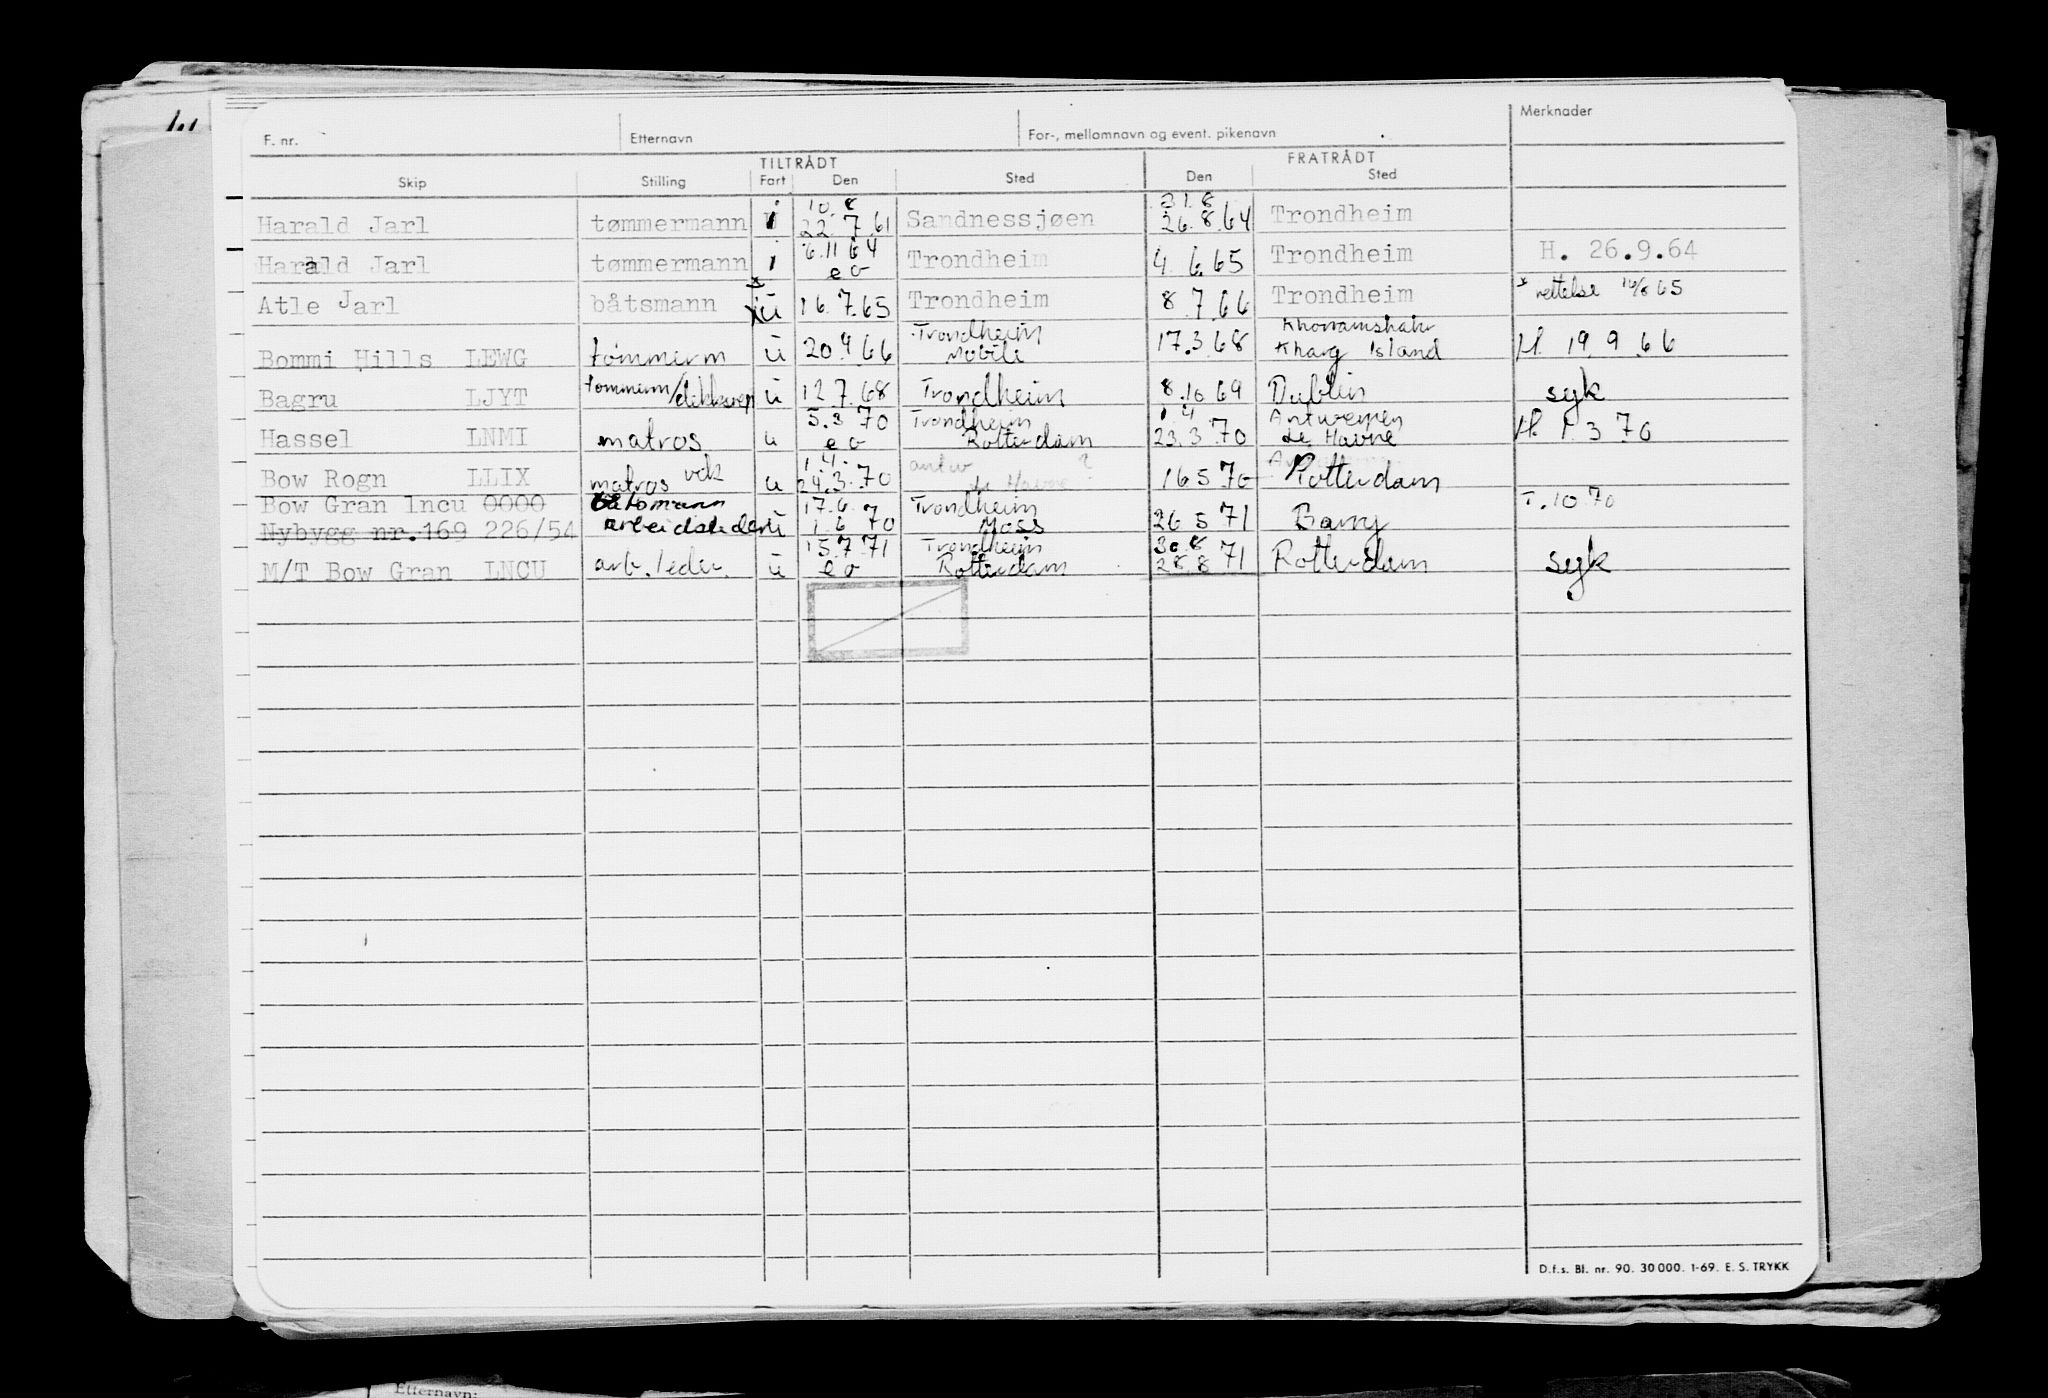 F. nr. Etternavn For-, mellomnavn og event. pikenavn Merknader
TILTRÅDT FRATRÅDT
Skip Stilling Fart Den Sted Den Sted
10.8 31.8
Harald Jarl tømmermann i 22.7.61 Sandnessjøen 26.8.64 Trondheim
6.11 64
Harald Jarl tømmermann i eo Trondheim 4.6.65 Trondheim H. 26.9.64
Atle Jarl båtsmann xu 16.7.65 Trondheim 8.7.66 Trondheim * rettelse 16/8 65
Trondheim Khorramshahr
Bommi Hills LEWG tømmerm u 20 9 66 Mobile 17.3.68 Kharg Island H. 19 9 66
Bagru LJYT tømmerm/dekksrep u 12.7.68 Trondheim 8.10.69 Dublin syk
5.3 70 Trondheim 1 4 Antwerpen
Hassel LNMI matros u eo Rotterdam 23.3.70 Le Havre H. 1 3 70
1.4. antw ?
Bow Rogn LLIX matros vck u 24.3.70 Le Havre 16 5 70 Rotterdam
Bow Gran lncu 0000 båtsmann 17.6. Trondheim T.10 70
Nybygg nr.169 226/54 arbeidsleder u 1.6 70 Moss 26 5 71 Barry
15.7.71 Trondheim 30.8
M/T Bow Gran LNCU arb.leder. u eo Rotterdam 28.8 71 Rotterdam syk
D.f.s. Bl. nr. 90. 30 000. 1-69. E. S. TRYKK
Etternavn: